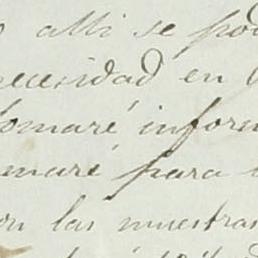 alli se pod
necesidad en
tomaré infor
maré para
con las muestra